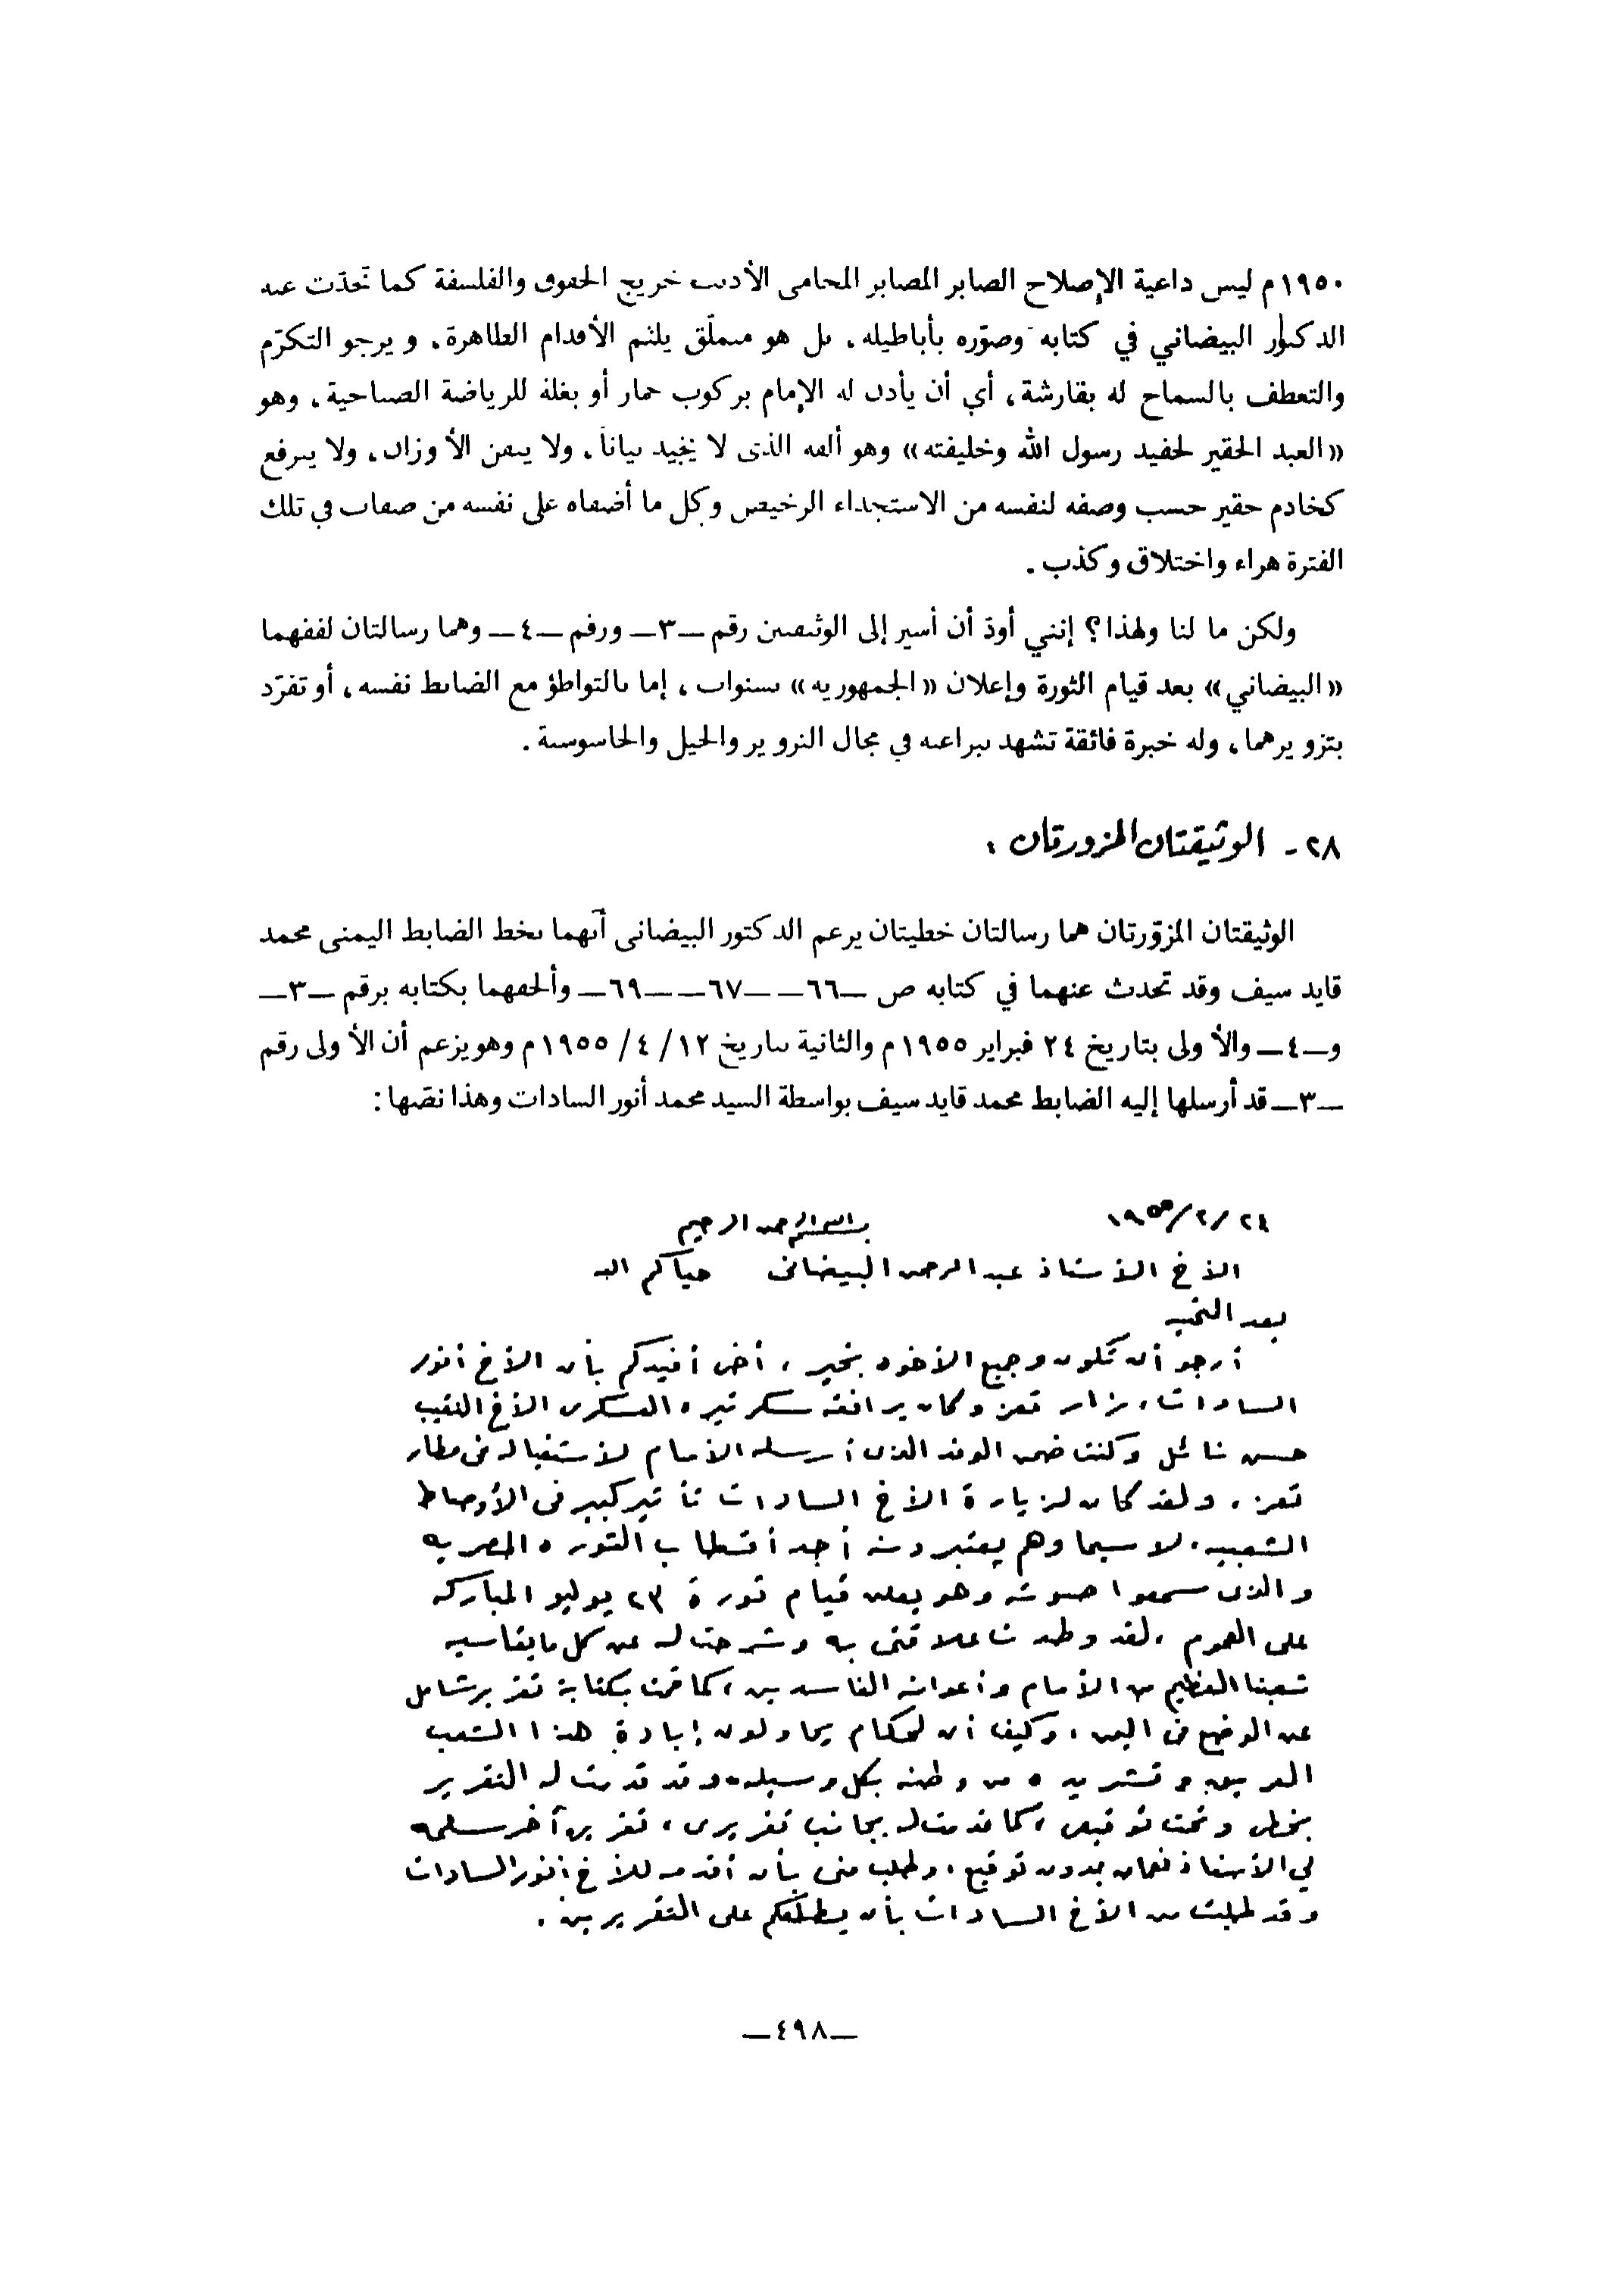 ١٩٥٠م ليس داعية الإصلاح الصابر المصابر المحامي الأديب خريج الحقوق والفلسفة كما تحدّث عنه
الدكتور البيضاني في كتابه وصوّره بأباطيله، بل هو متملّق يلثم الأقدام الطاهرة، ويرجو التكرّم
والتعطف بالسماح له بقارشة، أي أن يأذن له الإمام بركوب حمار أو بغلة للرياضة الصباحية، وهو
«العبد الحقير لحفيد رسول الله وخليفته» وهو ألفه الذي لا يجيد بياناً، ولا يتقن الأوزان، ولا يترفع
كخادم حقير حسب وصفه لنفسه من الاستجداء الرخيص وكل ما أضفاه على نفسه من صفات في تلك
الفترة هراء واختلاق وكذب.
ولكن ما لنا ولهذا؟ إنني أودّ أن أشير إلى الوثيقتين رقم ــ٣ــ ورقم ــ٤ــ وهما رسالتان لفقهما
«البيضاني» بعد قيام الثورة وإعلان «الجمهورية» بسنوات، إما بالتواطؤ مع الضابط نفسه، أو تفرّد
بتزويرهما، وله خبرة فائقة تشهد ببراعته في مجال التزوير والحيل والجاسوسية.
٢٨- الوثيقتان المزورتان:
الوثيقتان المزوّرتان هما رسالتان خطيتان يزعم الدكتور البيضاني أنهما بخط الضابط اليمني محمد
قايد سيف وقد تحدث عنهما في كتابه ص ــ٦٦ــ ــ٦٧ــ ــ٦٩ــ وألحقهما بكتابه برقم ــ٣ــ
وــ٤ــ والأولى بتاريخ ٢٤ فبراير ١٩٥٥م والثانية بتاريخ ١٢/٤/١٩٥٥م وهو يزعم أن الأولى رقم
ــ٣ــ قد أرسلها إليه الضابط محمد قايد سيف بواسطة السيد محمد أنور السادات وهذا نصّها:
٢٤/٢/١٩٥٥ بسم الله الرحمن الرحيم
الأخ الأستاذ عبد الرحمن البيضاني حياكم الله
بعد التحية
أرجو أن تكون وجميع الأخوه بخير، أخى أفيدكم بأن الأخ أنور
السادات، زار تعز وكان يرافقه سكرتيره العسكرى الأخ النقيب
حسن نائل وكنت ضمن الوفد الذى أرسله الأمام لأستقباله فى مطار
تعز، ولقد كان لزيارة الأخ السادات تأثير كبير فى الأوساط
الشعبيه، لا سيما وهم يعتبرونه أحد أقطاب الثوره المصريه
والذى سمعوا صوته وهو يعلن قيام ثورة ٢٣ يوليو المباركه
على العموم، لقد وطدت علاقتى به وشرحت له عن كل ما يقاسيه
شعبنا العظيم من الأمام وأعوانه الفاسدين، كما قمت بكتابة تقرير شامل
عن الوضع فى اليمن، وكيف أن الحكام يحاولون إبادة هذا الشعب
العريق وتشريده من وطنه بكل وسيله، وقد قدمت له التقرير
بخطى وتحت توقيعى، كما قدمت له بجانب تقريرى، تقرير آخر سلمه
لي الأستاذ نعمان بدون توقيع، وطلب منى بأن أقدمه للأخ أنور السادات
وقد طلبت من الأخ السادات بأن يطلعكم على التقريرين.
ــ٤٩٨ــ